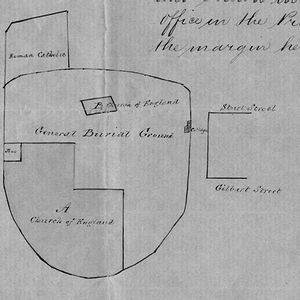 office in the Pr
the margin he
Roman Catholic
B Church of England
General Burial Ground
Cottage
Stuart Street
Gilbert Street
A
Church of England